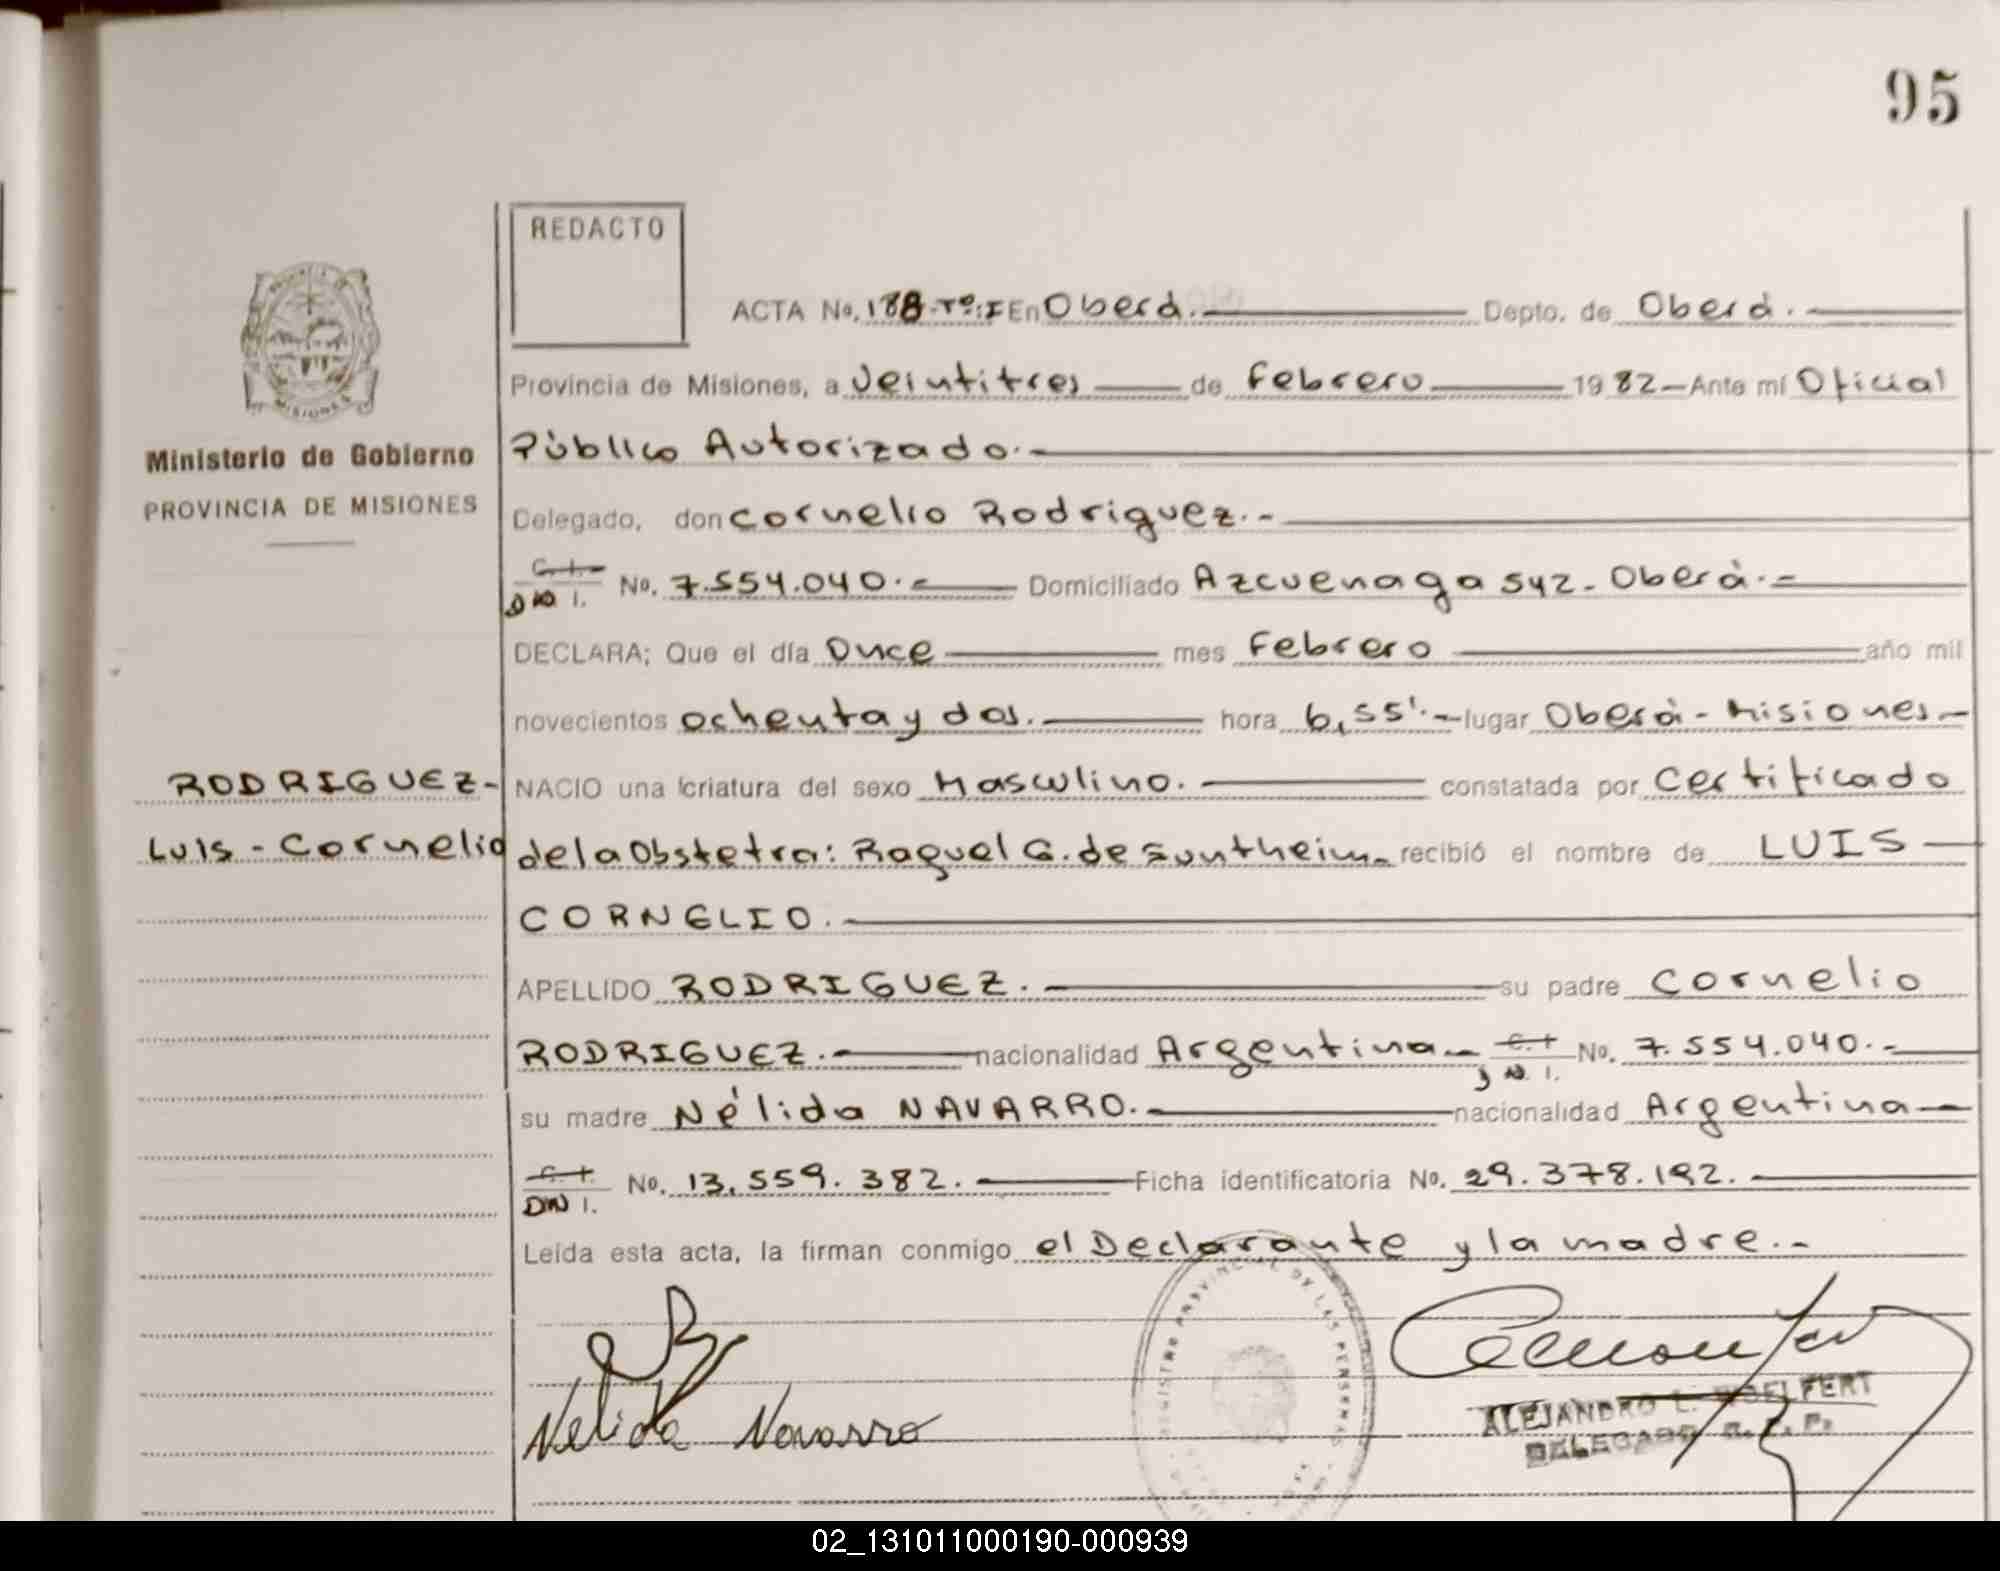 95
REDACTO
ACTA No. 188-Tº:I En Oberá. Depto. de Oberá.
Provincia de Misiones, a Veintitres de Febrero 1982 Ante mí Oficial
Público Autorizado.-
Ministerio de Gobierno
PROVINCIA DE MISIONES
MISIONES
Delegado, don Cornelio Rodriguez.-
C. I. DN I. No. 7.554.040.- Domiciliado Azcuenaga 542- Oberá.-
DECLARA; Que el día Once mes Febrero año mil
novecientos ochenta y dos. hora 6,55'.- lugar Oberá- Misiones-
RODRIGUEZ- NACIO una criatura del sexo Masculino. constatada por Certificado
Luis - Cornelio de la Obstetra: Raquel G. de recibió el nombre de LUIS
CORNELIO.
APELLIDO RODRIGUEZ. su padre Cornelio
RODRIGUEZ.- nacionalidad Argentina- C. I DN I. No. 7.554.040.-
su madre Nélida NAVARRO.- nacionalidad Argentina-
C. I. DN I. No. 13.559.382. Ficha identificatoria No. 29.378.192.
Leída esta acta, la firman conmigo el Declarante y la madre.-
REGISTRO PROVINCIAL DE LAS PERSONAS
Nelida Navarro
ALEJANDRO L. WOELFERT
DELEGADO R. P. P.
02_131011000190-000939